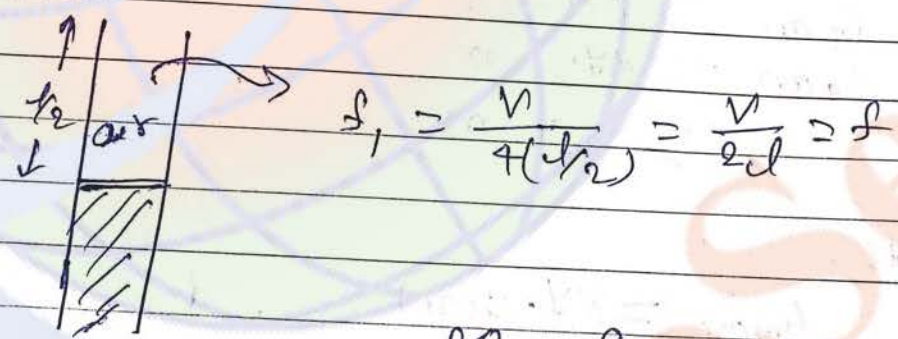 l/2 air
f₁ = V/4(l/2) = V/2l = f